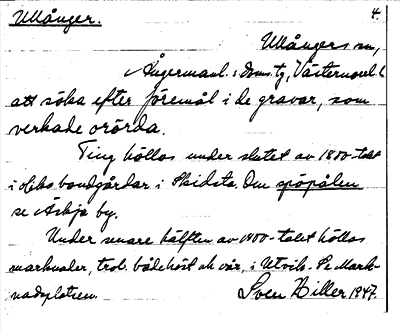 Ullånger.
4.
Ullångers sn,
Ångermanl. s. doms. tg, Västernorrl. l
att söka efter föremål i de gravar, som
verkade orörda.
Ting hölls under slutet av 1800-talet
i olika bondgårdar i Skidsta. Om spöpålen
se Äskja by.
Under senare hälften av 1800-talet hölls
marknader, trol. både höst och vår, i Utvik. Se Mark-
nadsplatsen.
Sven Biller 1947.